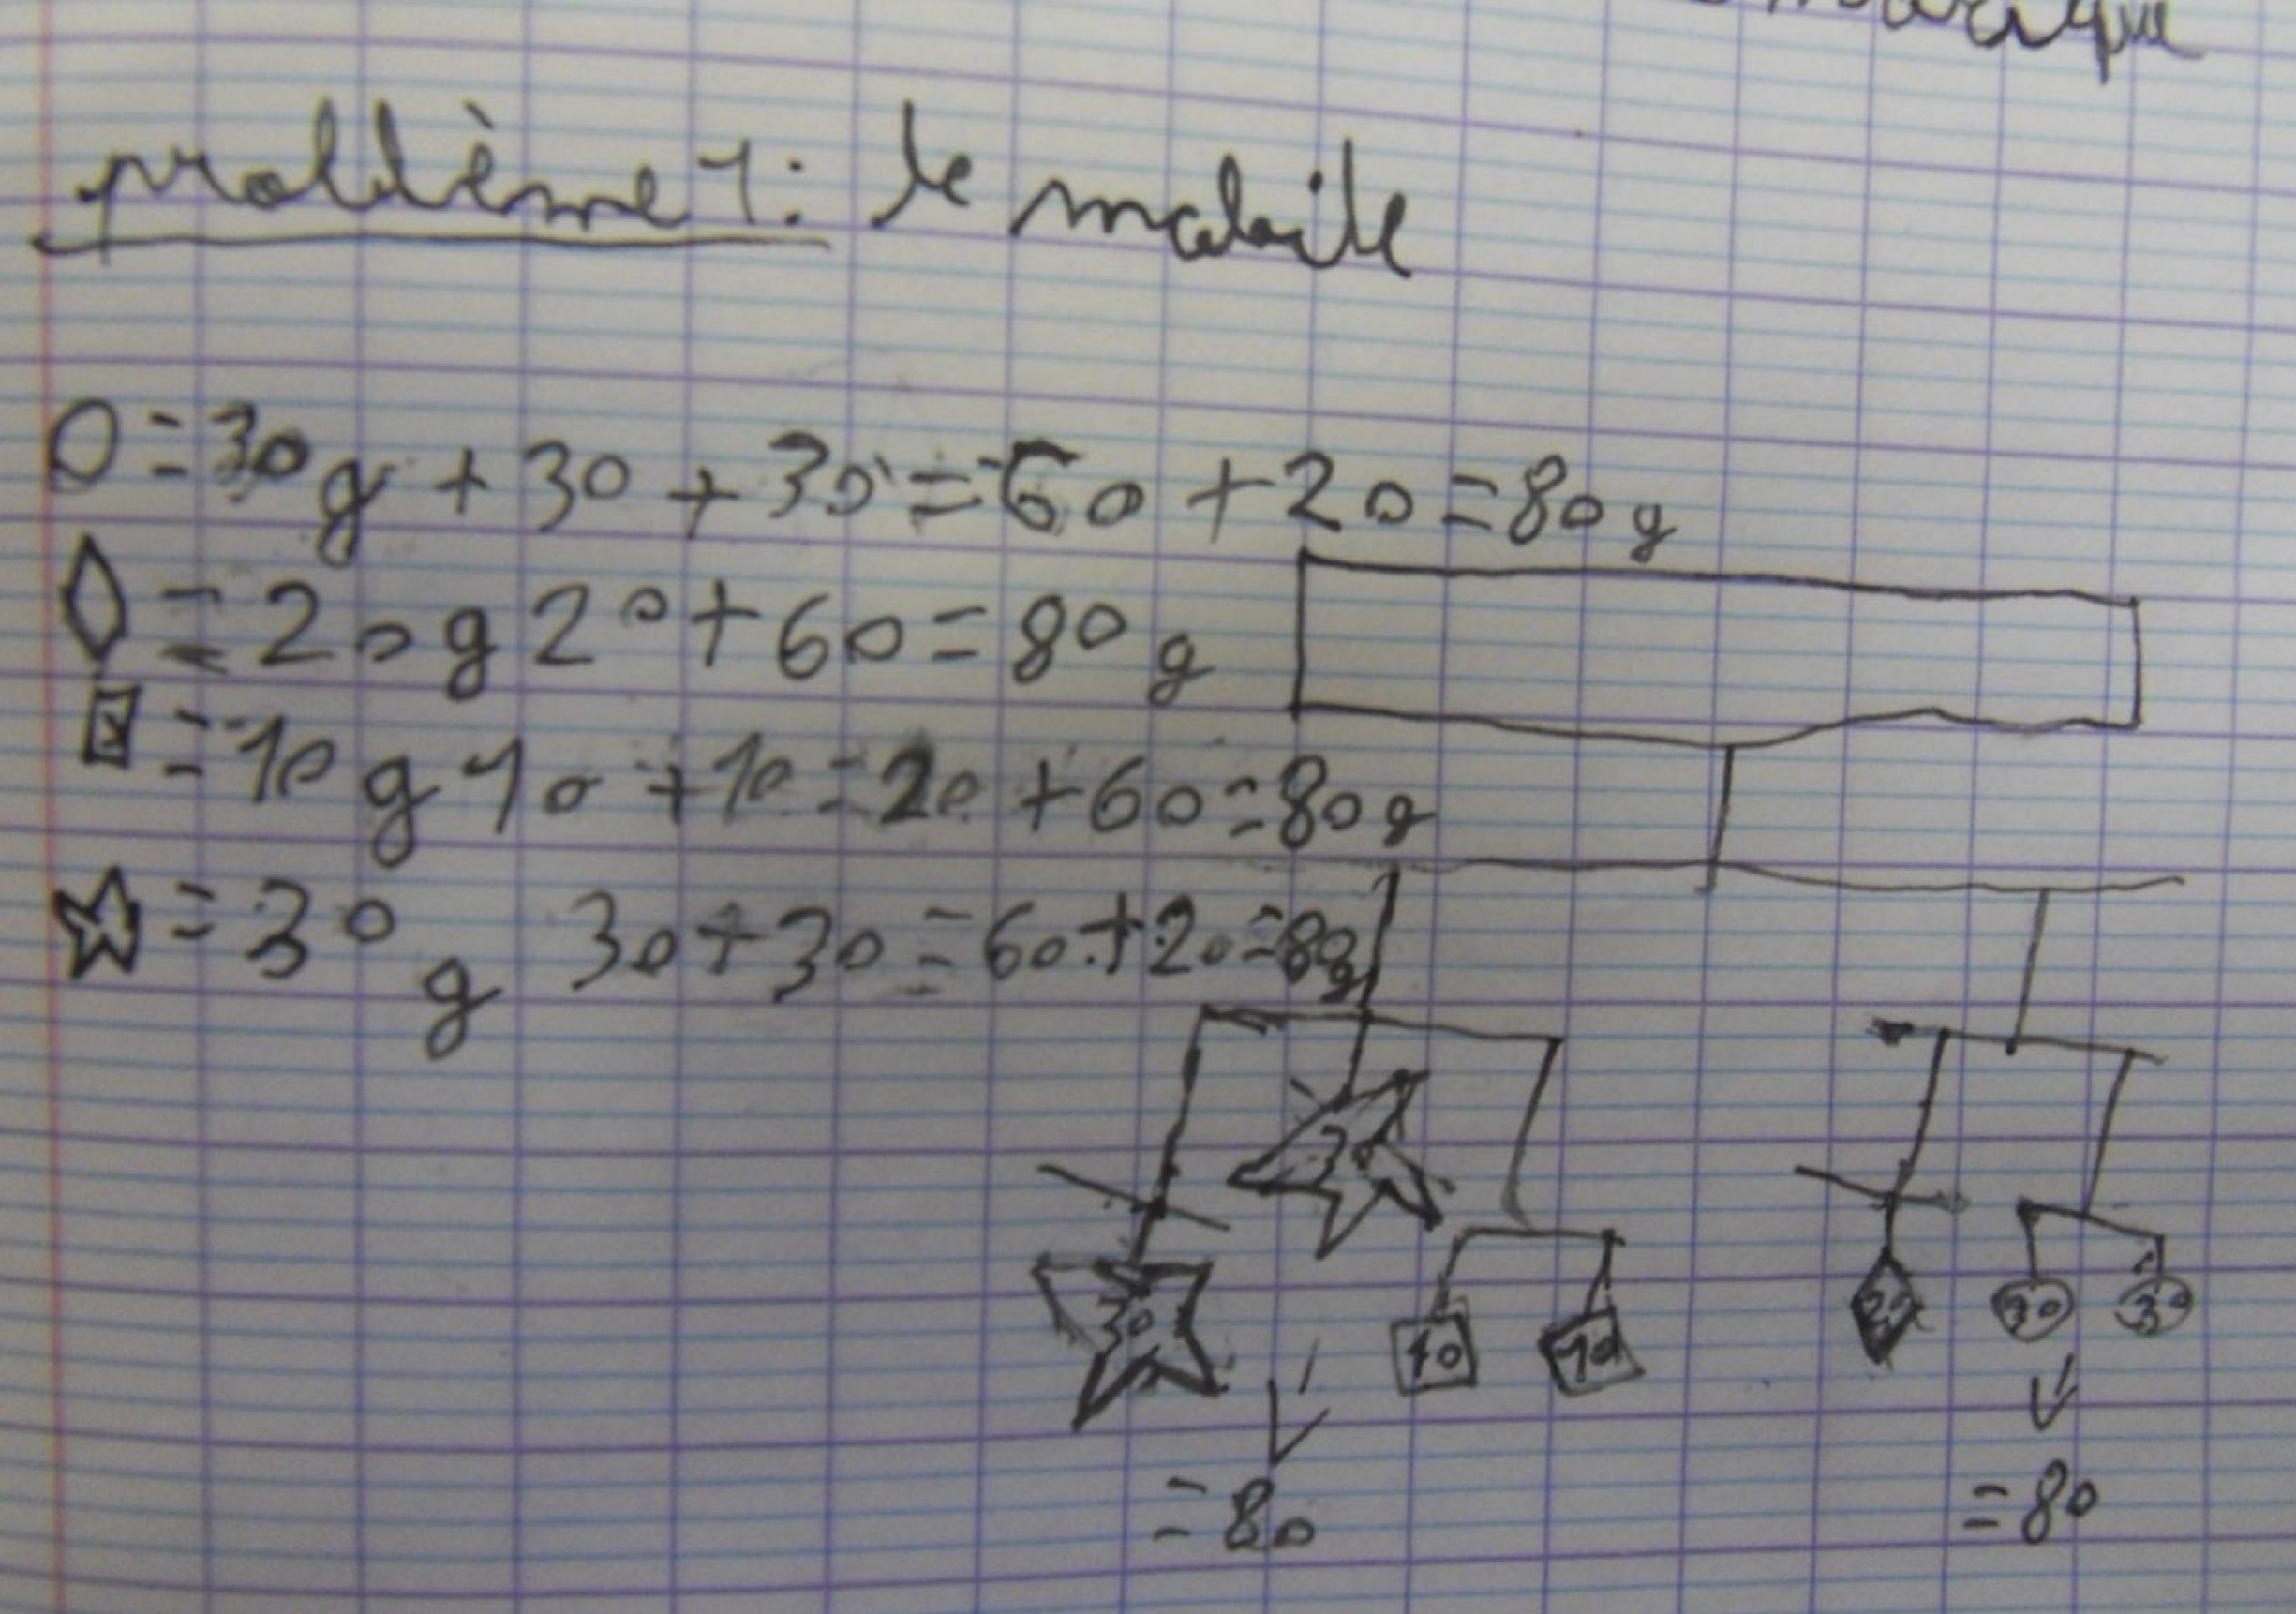 problème 1: le mobile
○=30g + 30 + 30 = 60 + 20 = 80g
◊ = 20g 20 + 60 = 80g
□ = 10g 10 + 10 = 20 + 60 = 80g
☆ = 30g 30 + 30 = 60 + 20 = 80g
30
30
10 10
30 30
= 80
= 80